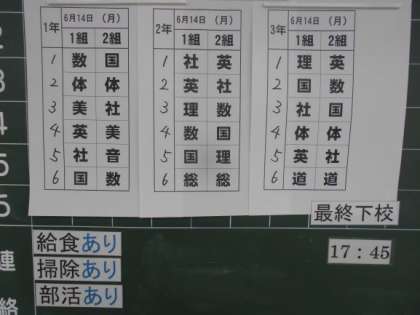 1年 6月14日 (月)
1組 2組
1 数 国
2 体 体
3 美 社
4 英 美
5 社 音
6 国 数
2年 6月14日 (月)
1組 2組
1 社 英
2 英 社
3 理 数
4 数 国
5 国 理
6 総 総
3年 6月14日 (月)
1組 2組
1 理 英
2 国 数
3 社 国
4 体 体
5 英 社
6 道 道
最終下校
17:45
給食あり
掃除あり
部活あり
連
絡
2
3
4
5
5